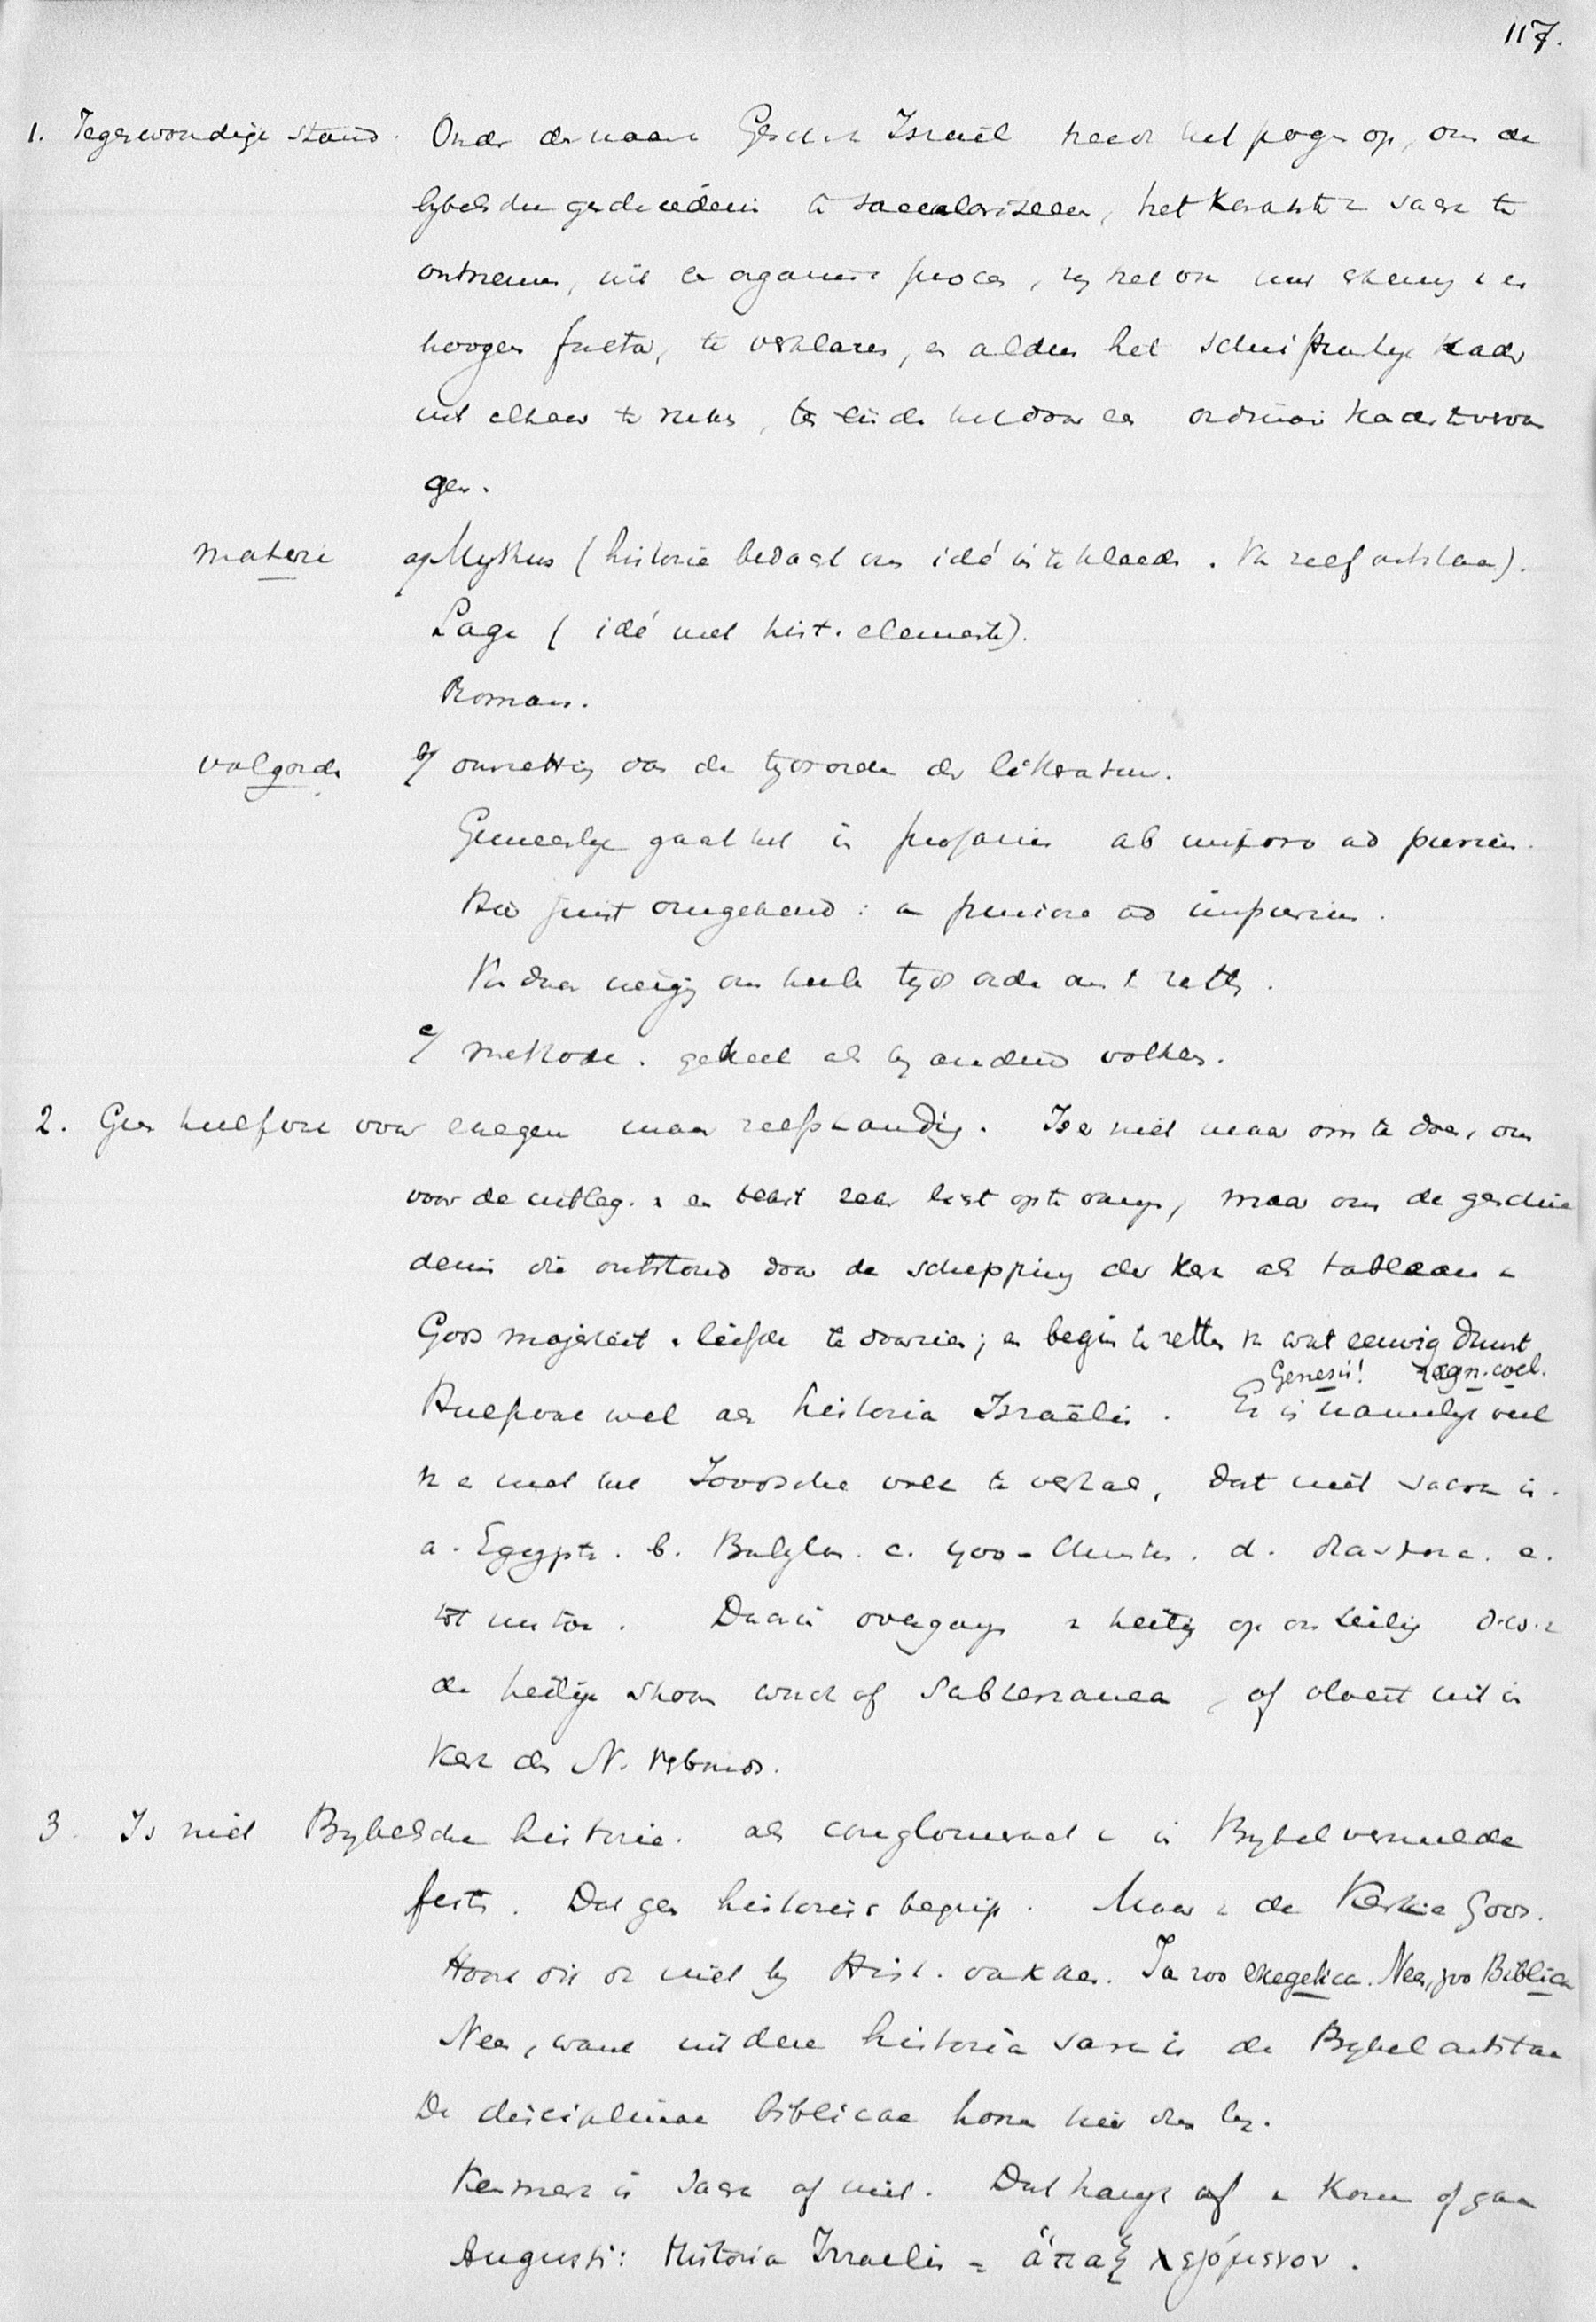 117.
1. Tegenwoordige stand. Onder de naam Gesch. v. Israël treedt het pogen op, om de
bybelsche geschiedenis te saeculariseeren, het karakter v. sacra te
ontnemen, uit een organisch proces, zonder hooger
hoogere factor, te verklaren, en aldus het schriftuurlyk kader
uit elkaar te rukken, ten einde het door een ordinair kader te vervan
gen.
materie a/ Mythus (historie bedacht om idé in te kleeden. Van zelf ontstaan).
Sage (idé met hist. elementen).
Roman.
volgorde b/ omzetting van de tydsorde der litteratuur.
Gemeenlyk gaat het in profanis ab impuro ad purius.
Hier juist omgekeerd: a puriore ad impurius.
Van daar neiging om heele tydsorde om te zetten.
c/ methode. geheel als by andere volken.
2. Geen hulpvak voor exegese maar zelfstandig. Is er niet maar om te doen, om
voor de uitlegging v. een tekst zeker licht op te vangen, maar om de geschie
denis die ontstond door de schepping der kerk als tableau v.
Gods majesteit en liefde te doorzien; een begin te zetten v. wat eeuwig duurt
Genesis! regn. coel.
Hulpvak wel als historia Israëlis. Er is namelyk veel
v. met het Joodsche volk te verhalen, dat niet sacra is.
a. Egypte. b. Babylon. c. 400 - Christus. d. diaspora. e.
tot nu toe. Daarin overgang v. heilig op onheilig d.w.z.
de heilige stroom wordt of subterranea, of vloeit uit in
Kerk des N. Verbonds.
3. Is niet Bybelsche historie. als conglomeraat v. in Bybel vermelde
feiten. Dat geen historisch begrip. Maar v. de Kerk Gods.
Hoort dit dan niet by Hist. vakken. Ja zoo exegetica. Neen, zoo Biblica
Neen, want uit deze historia sacra is de Bybel ontstaan
De disciplinae biblicae horen hier dus by.
Kenmerk is sacra of niet. Dat hangt af v. komen of gaan
Augusti: Historia Israelis = ἅπαξ λεγόμενον.